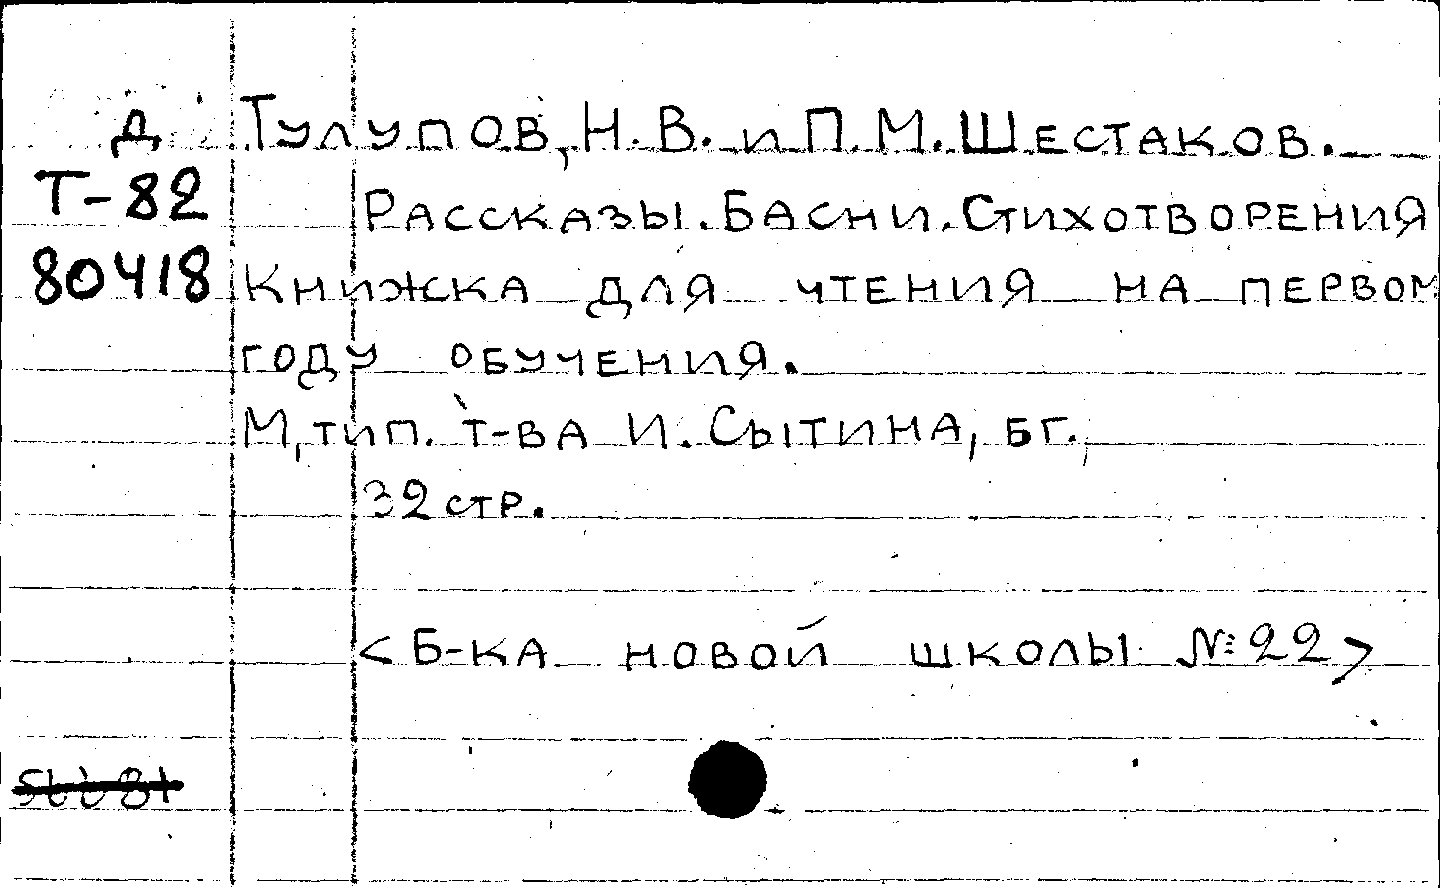 Д Тулупов, Н. В. и П. М. Шестаков.
Т-82 Рассказы. Басни. Стихотворения
80418 Книжка для чтения на первом
году обучения.
М, тип. т-ва И. Сытина, бг.,
32 стр.
<Б-ка новой школы №22>